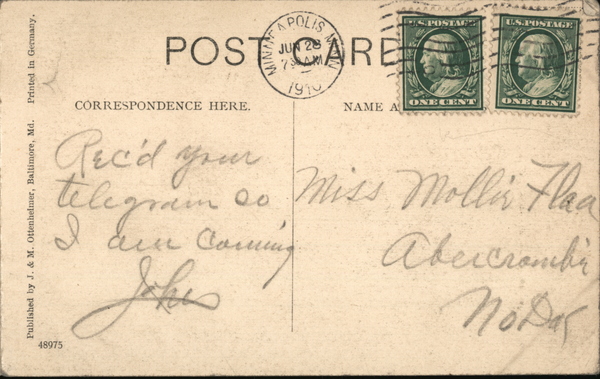 POST CARD
MINNEAPOLIS, MINN.
JUN 28
7 30 AM
1910
U.S. POSTAGE
ONE CENT
U.S. POSTAGE
ONE CENT
CORRESPONDENCE HERE.
NAME A
Rec'd your
telegram so
I am coming
John
Miss Mollie Flaa
Abercrombie
No Dak
Published by J. & M. Ottenheimer, Baltimore, Md. Printed in Germany.
48975